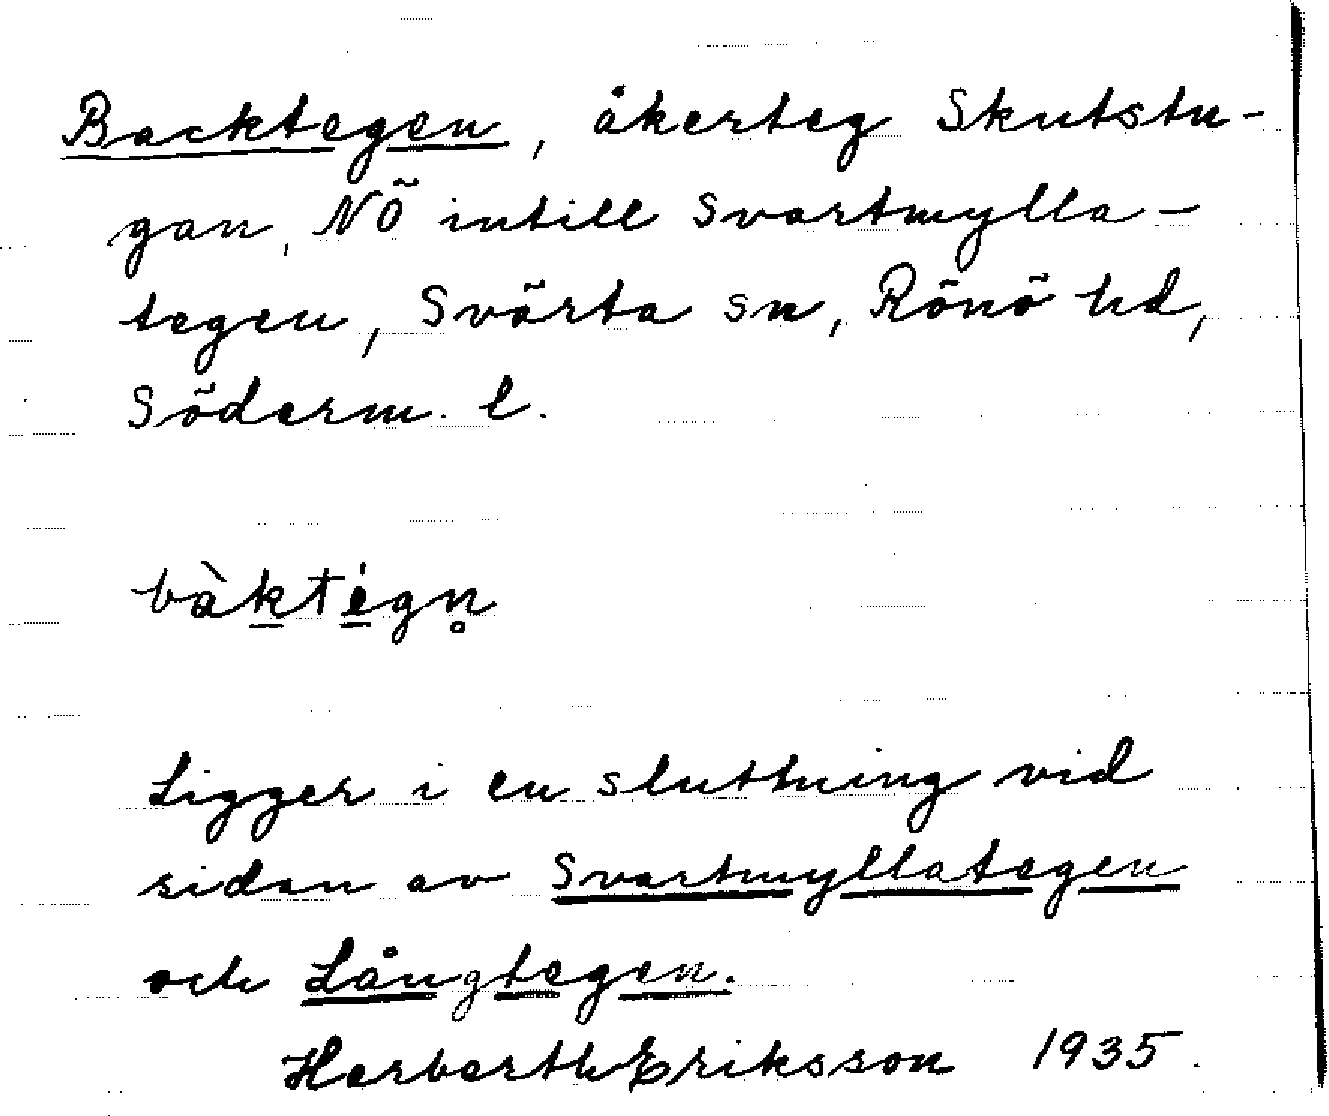 Backtegen, åkerteg Skutstu-
gan, NÖ intill Svartmylla-
tegen, Svärta sn, Rönö hd,
Söderm. l.
bàktégn̥
Ligger i en sluttning vid
sidan av Svartmyllategen
och Långtegen.
Herberth Eriksson 1935.